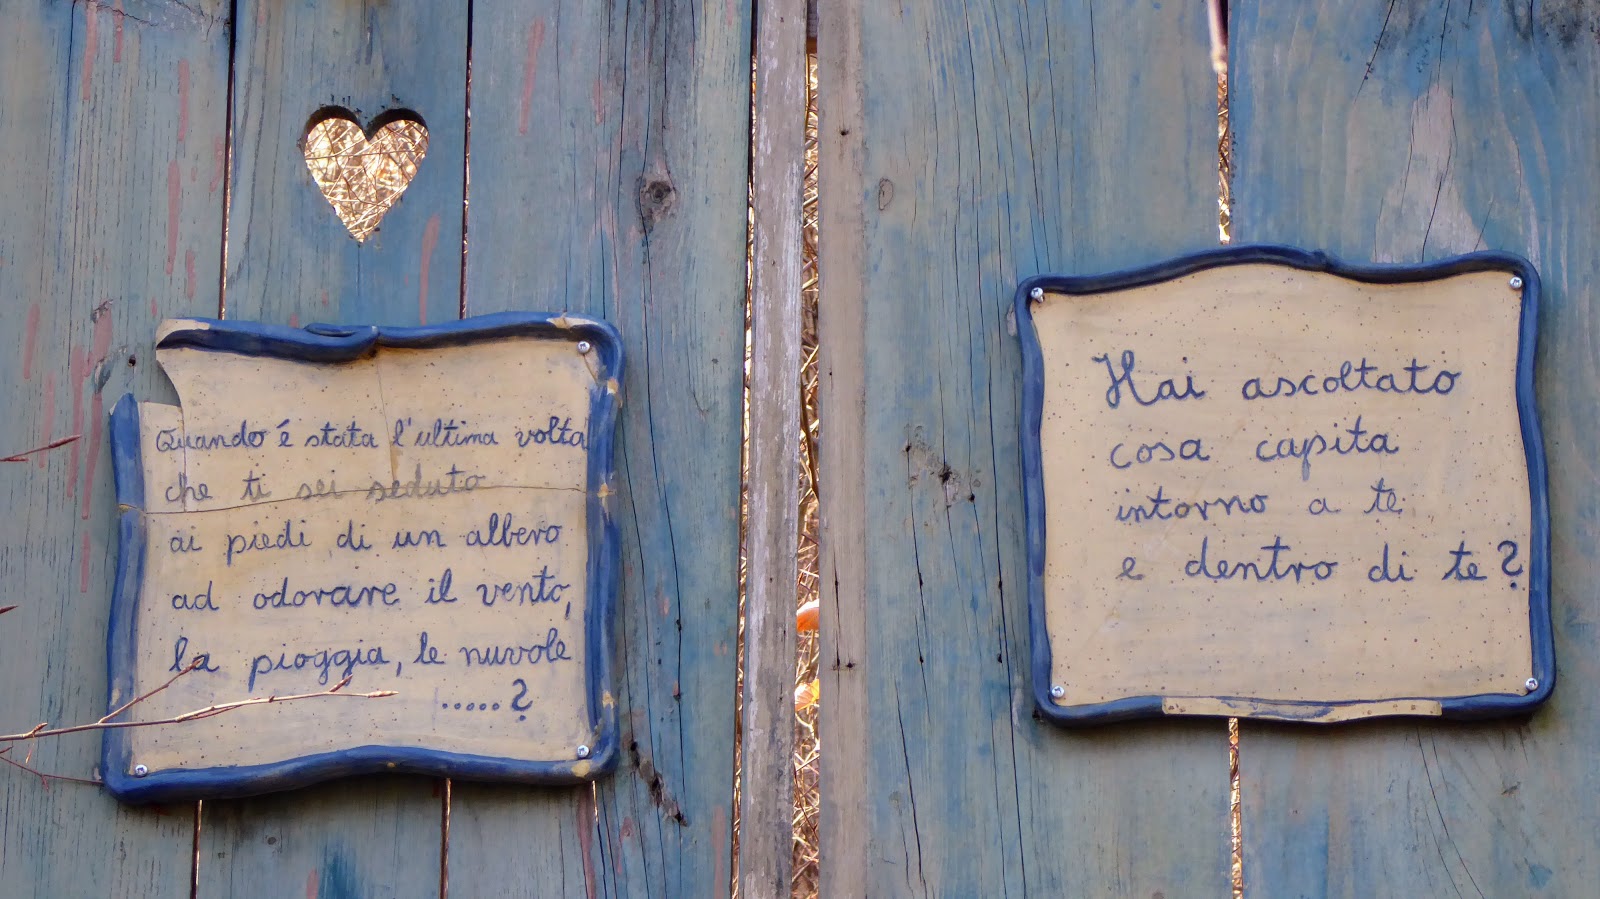 Quando é stata l'ultima volta
che ti sei seduto
ai piedi di un albero
ad odorare il vento,
la pioggia, le nuvole
.....?
Hai ascoltato
cosa capita
intorno a te
e dentro di te?